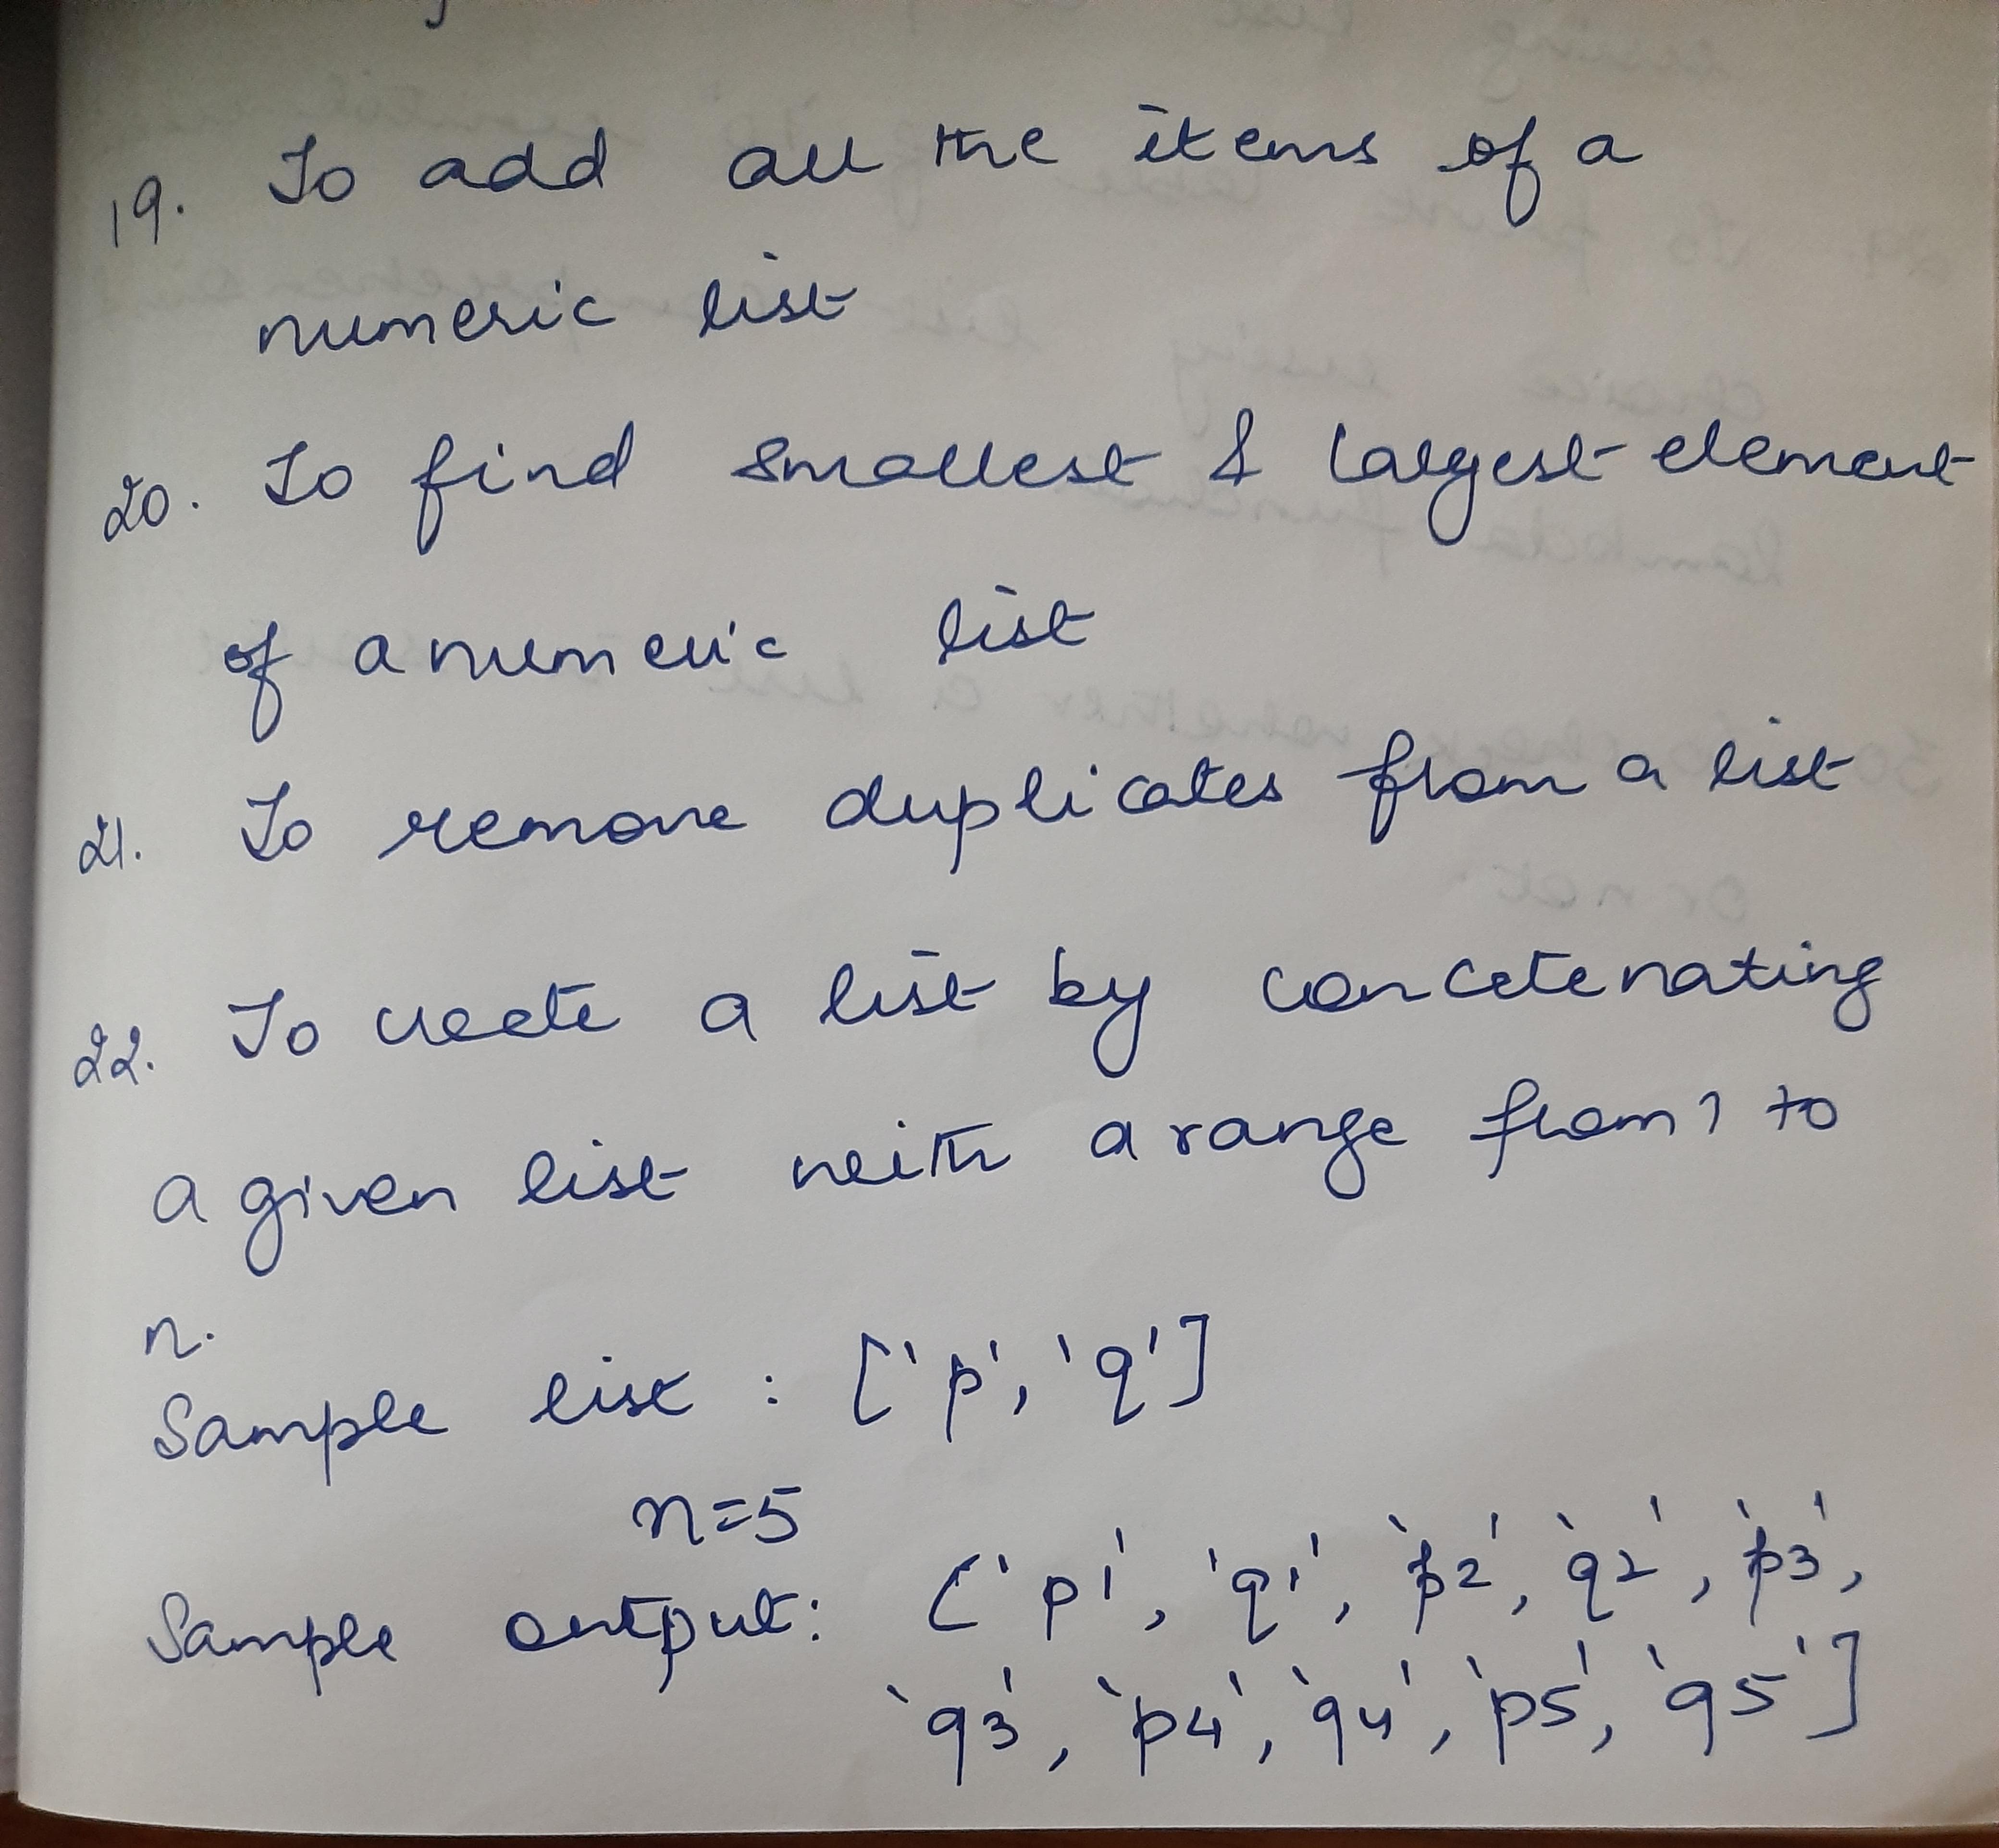 19. To add all the items of a
numeric list
20. To find smallest & largest element
of a numeric list
21. To remove duplicates from a list
22. To create a list by concetenating
a given list with a range from 1 to
n.
Sample list : ['p', 'q']
n=5
Sample output: ['p1', 'q1', 'p2', 'q2', 'p3',
'q3', 'p4', 'q4', 'p5', 'q5']